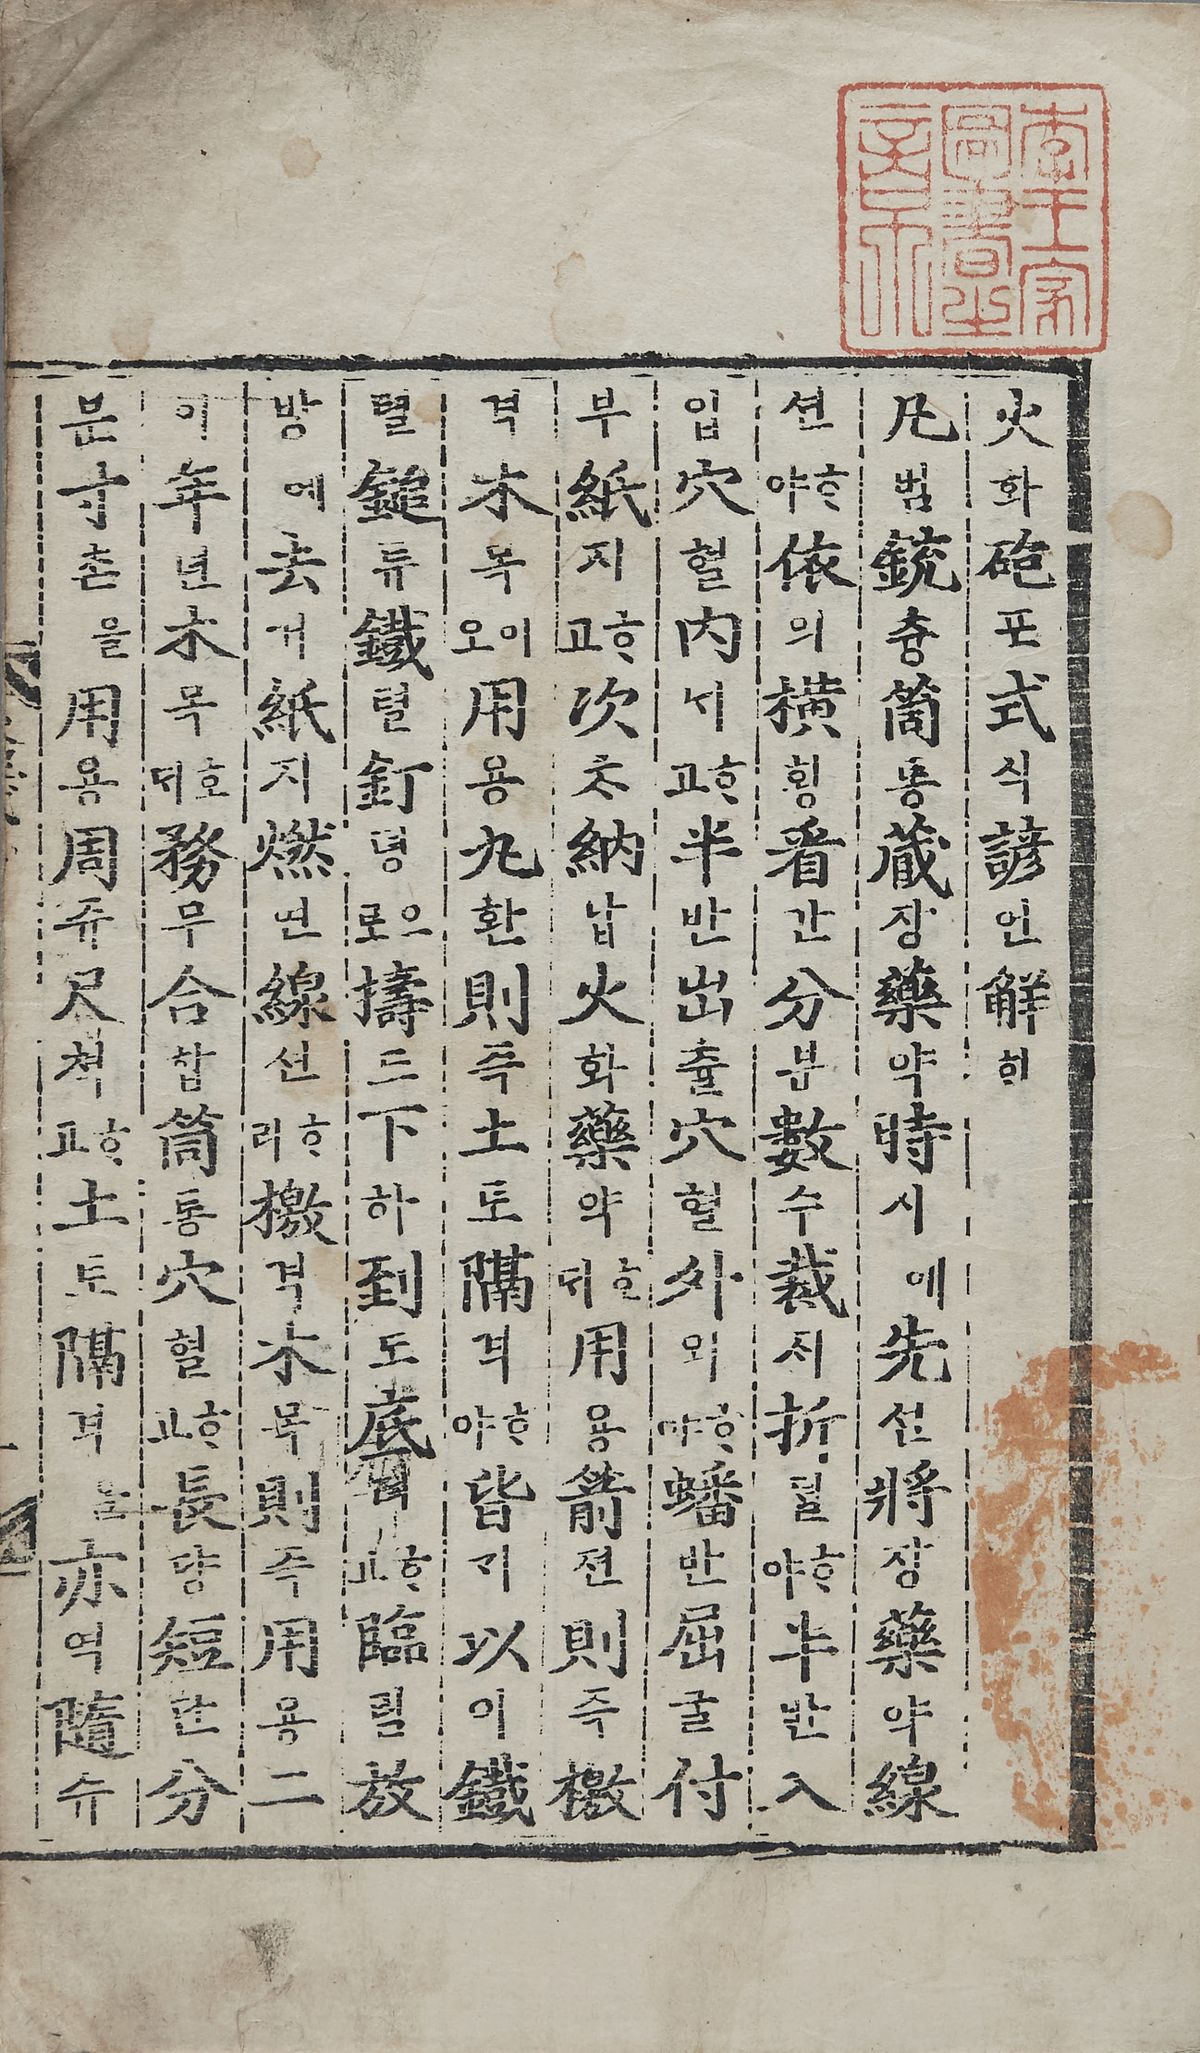 李王家
圖書之
章
火화砲포式식諺언解ᄒᆡ
凡범銃츙筒통藏장藥약時시예先션將쟝藥약線
션ᄒᆞ야依의橫횡看간分분數수裁ᄌᆡ折졀ᄒᆞ야半반入
입穴혈內ᄂᆡᄒᆞ고半반出츌穴혈外외ᄒᆞ야蟠반屈굴付
부紙지ᄒᆞ고次ᄎᆞ納납火화藥약호ᄃᆡ用용箭젼則즉檄
격木목이오用용丸환則즉土토隔격ᄒᆞ야皆ᄀᆡ以이鐵
텰鎚튜鐵텰釘뎡으로擣도下하到도底뎌ᄒᆞ고臨림放
방에去거紙지燃연線션ᄒᆞ리檄격木목則즉用용二
이年년木목호ᄃᆡ務무合합筒통穴혈ᄒᆞ고長댱短단分
분寸촌을用용周쥬尺쳑ᄒᆞ고土토隔격은亦역隨슈